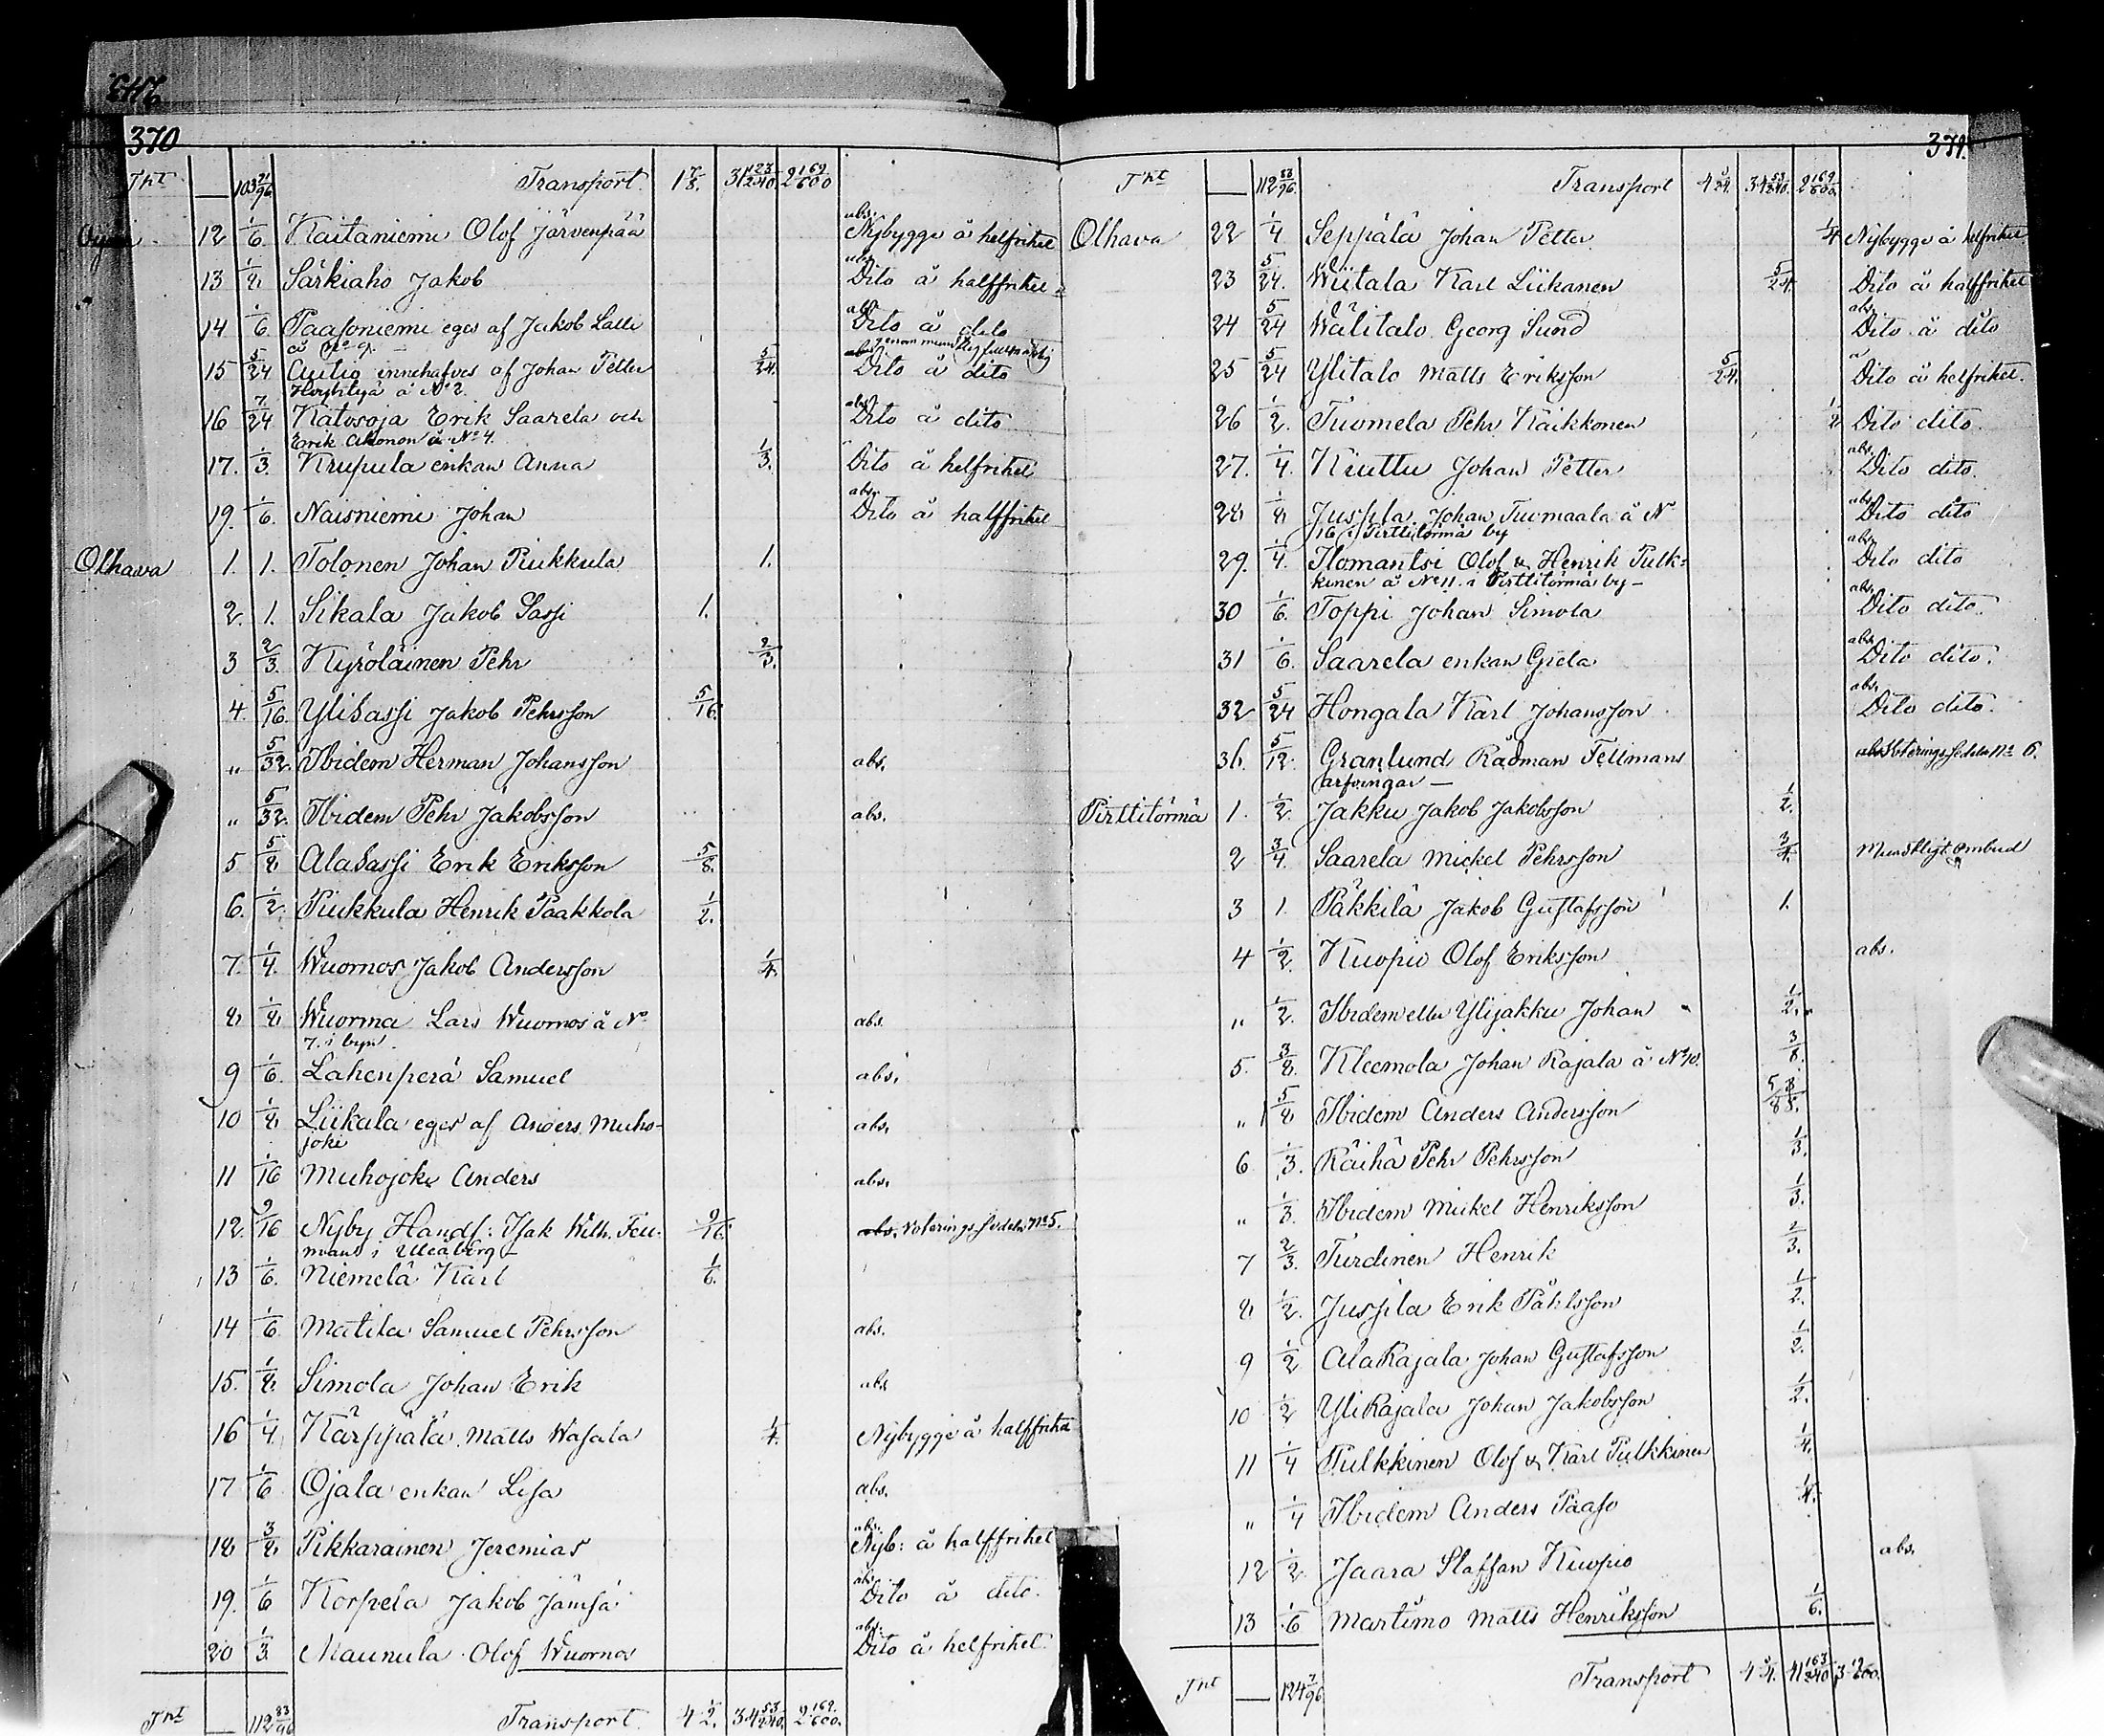 370
Tnt — 103 21/96 Transport. 1 7/8. 31 123/240 2 169/600
12 1/6. Kaitaniemi Olof Järvenpää abs. Nybygge å helfrihet
13 1/8 Särkiaho Jakob abs. Dito å halffrihet
14 1/6. Paasoniemi eges af Jakob Lalli abs. Dito å dito
å No 9. —
15 5/24 Autio innehafves af Johan Petter 5/24. Dito å dito
Höyhtyä å No 2.
16 7/24 Katosoja Erik Saarela och abs. Dito å dito
Erik Ahonen å No 4.
17. 1/3. Krupula enkan Anna 1/3. Dito å helfrihet
19. 1/6. Naisniemi Johan abs. Dito å halffrihet
Olhava 1. 1. Tolonen Johan Puikkula 1.
2. 1. Sikala Jakob Sassi 1.
3 2/3. Kyröläinen Pehr 2/3.
4. 5/16. YliSassi Jakob Pehrsson 5/16.
" 5/32. Ibidem Herman Johansson abs.
" 5/32. Ibidem Pehr Jakobsson abs.
5 5/8 AlaSassi Erik Eriksson 5/8.
6. 1/2. Puikkula Henrik Paakkola 1/2.
7. 1/4. Wuornos Jakob Andersson 1/4.
8 1/8 Wuorma Lars Wuornos å No abs.
7. i byn.
9 1/6. Lahenperä Samuel abs.
10 1/8 Liikala eges af Anders Muho- abs.
joki
11 1/16 Muhojoki Anders abs.
12. 9/16 Nyby Handl: Isak Wilh. Fell- 9/16. abs. Voterings sedeln No 5.
mans i Uleåborg —
13 1/6. Niemelä Karl 1/6.
14 1/6. Matila Samuel Pehrsson abs.
15. 1/8. Simola Johan Erik abs
16 1/4. Kärppälä Matts Wasala 1/4. Nybygge å halffrihet
17 1/6 Ojala enkan Lisa abs.
18 3/8 Pikkarainen Jeremias abs. Nyb: å halffrihet
19. 1/6 Korpela Jakob Jämsä abs. Dito å dito.
20 1/3. Maunula Olof Wuornos abs. Dito å helfrihet.
Tnt — 112 83/96 Transport. 4 1/2. 34 53/240. 2 169/600.
371.
Tnt — 112 83/96. Transport 34 53/240. 2 169/600.
Olhava 22 1/4 Seppälä Johan Petter 1/4 Nybygge å helfrihet
23 5/24. Wiitala Karl Liikanen 5/24. Dito å halffrihet
24 5/24 Wälitalo Georg Sund abs. Dito å dito
25 5/24 Ylitalo Matts Eriksson 5/24. Dito å helfrihet.
26 1/2. Tuomela Pehr Kaikkonen 1/2 Dito dito.
27. 1/4. Kiuttu Johan Petter abs. Dito dito.
28 1/8 Jussila Johan Tuomaala å N abs. Dito dito
16 i Pirttitörmä by
29. 1/4. Ilomantsi Olof & Henrik Pulk= abs. Dito dito
kinen å No 11. i Pirttitörmä by —
30 1/6. Toppi Johan Simola abs. Dito dito.
31 1/6. Saarela enkan Greta abs. Dito dito.
32 5/24 Hongala Karl Johansson abs. Dito dito.
36. 5/12. Granlund Rådman Fellmans abs Voterings sedeln No 6.
arfvingar —
Pirttitörmä 1. 1/2. Jakku Jakob Jakobsson 1/2.
2 3/4. Saarela Mickel Pehrsson 3/4. Mundtligt ombud
3 1. Päkkilä Jakob Gustafsson 1.
4 1/2. Kuopio Olof Eriksson abs.
" 1/2. Ibidem eller Ylijakku Johan 1/2.
5. 3/8. Kleemola Johan Rajala å No 10. 3/8.
" 5/8 Ibidem Anders Andersson 5/8
6 1/3. Räihä Pehr Pehrsson 1/3.
" 1/3. Ibidem Mickel Henriksson 1/3.
7 2/3. Turdinen Henrik 2/3.
8 1/2. Jussila Erik Påhlsson 1/2.
9 1/2 AlaRajala Johan Gustafsson 1/2.
10 1/2 YliRajala Johan Jakobsson 1/2.
11 1/4 Pulkkinen Olof & Karl Pulkkinen 1/4.
" 1/4 Ibidem Anders Paaso 1/4.
12 1/2. Jaara Staffan Kuopio abs.
13 1/6 Martimo Matts Henriksson 1/6.
Tnt — 124 7/96. Transport 41 163/240